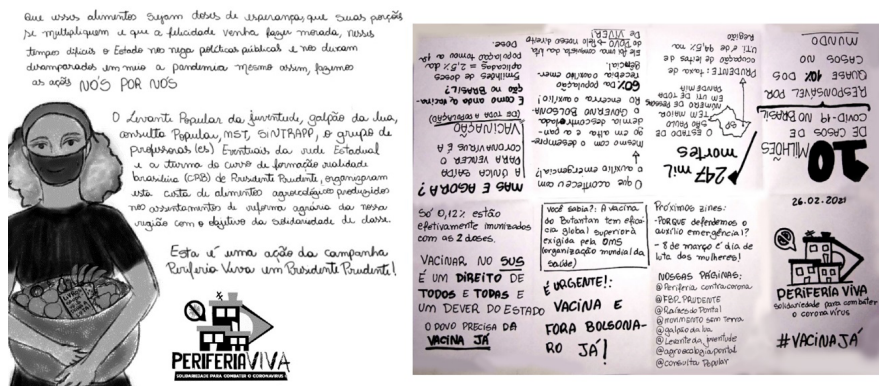 Que esses alimentos sejam doses de esperança, que suas porções
se multipliquem e que a felicidade venha fazer morada, nesses
tempos difíceis o Estado nos nega políticas públicas e nos deixam
desamparados em meio a pandemia mesmo assim, fazemos
as ações NÓS POR NÓS
O Levante Popular da juventude, galpão da lua,
consulta Popular, MST, SINTRAPP, o grupo de
professoras(es) Eventuais da rede Estadual
e a turma do curso de formação realidade
brasileira (CRB) de Presidente Prudente, organizaram
esta cesta de alimentos agroecológicos produzidos
nos assentamentos de reforma agrária da nossa
região com o objetivo da solidariedade de classe.
Esta é uma ação da campanha
Periferia Viva em Presidente Prudente!
PERIFERIAVIVA
SOLIDARIEDADE PARA COMBATER O CORONAVÍRUS
MAS E AGORA?
A ÚNICA SAÍDA
PARA VENCER O
CORONAVÍRUS É A
VACINAÇÃO
(DE TODA A POPULAÇÃO)
E como anda a vacina-
ção no BRASIL?
5 milhões de doses
aplicadas = 2,5% da
população tomou a 1ª
Dose.
O que aconteceu com
o auxílio emergencial?
Mesmo com o desempre-
go em alta e a pan-
demia descontrolada
o GOVERNO BOLSONA-
RO encerrou o auxílio!
60% da população
recebia o auxílio emer-
gencial.
Ele foi uma conquista da luta
do POVO pelo nosso direito
De VIVER!
247 mil
mortes
O ESTADO DE
SÃO PAULO
TEM MAIOR
NÚMERO DE PESSOAS
EM UTI DE TODA
PANDEMIA
SP
PRUDENTE: taxa de
ocupação de leitos de
UTI é de 94,5% na
Região
10
MILHÕES
DE CASOS DE
COVID-19 NO BRASIL
RESPONSÁVEL POR
QUASE 10% DOS
CASOS NO
MUNDO
Só 0,12% estão
efetivamente imunizados
com as 2 doses.
VACINAR NO SUS
É UM DIREITO DE
TODOS E TODAS E
UM DEVER DO ESTADO
O POVO PRECISA DA
VACINA JÁ
você sabia?: A vacina
do Butantan tem eficá-
cia global superior à
exigida pela OMS
(organização mundial da
saúde)
É URGENTE!:
VACINA E
FORA BOLSONA-
RO JÁ!
Próximos zines:
-PORQUE defendemos o
auxílio emergencial?
- 8 de março é dia de
luta das mulheres!
NOSSAS PÁGINAS:
@Periferia contracorona
@FBP.PRUDENTE
@Raízes do Pontal
@movimento sem terra
@galpão da lua
@Levante da juventude
@agroecologiapontal
@Consulta Popular
26.02.2021
PERIFERIA VIVA
solidariedade para combater
o coronavírus
#VACINAJÁ